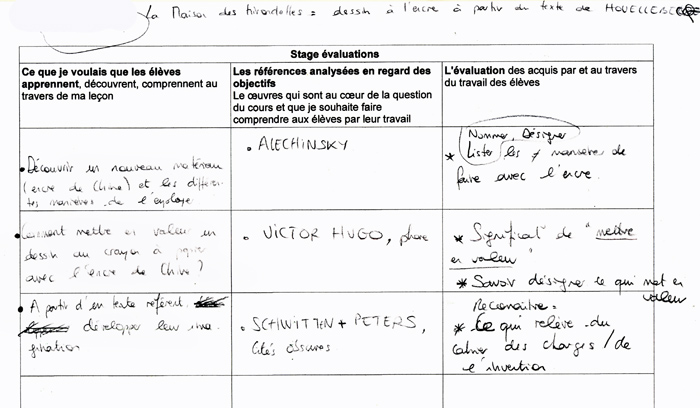 La Maison des hirondelles = dessin à l'encre à partir du texte de HOUELLEBECQ
Stage évaluations
Ce que je voulais que les élèves
apprennent, découvrent, comprennent au
travers de ma leçon
Les références analysées en regard des
objectifs
Le œuvres qui sont au cœur de la question
du cours et que je souhaite faire
comprendre aux élèves par leur travail
L'évaluation des acquis par et au travers
du travail des élèves
• Découvrir un nouveau matériau
(encre de Chine) et les différen-
tes manières de l'employer
• ALECHINSKY
Nommer, Désigner
* Lister les ≠ manières de
faire avec l'encre.
• Comment mettre en valeur un
dessin au crayon à papier
avec l'encre de Chine ?
• VICTOR HUGO, phare
* Significat° de "mettre
en valeur"
* Savoir désigner ce qui met en
valeur
• A partir d'un texte référent
développer leur ima
gination
• SCHWITTEN + PETERS,
Cités obscures
Reconnaître =
* Ce qui relève du
cahier des charges / de
l'invention